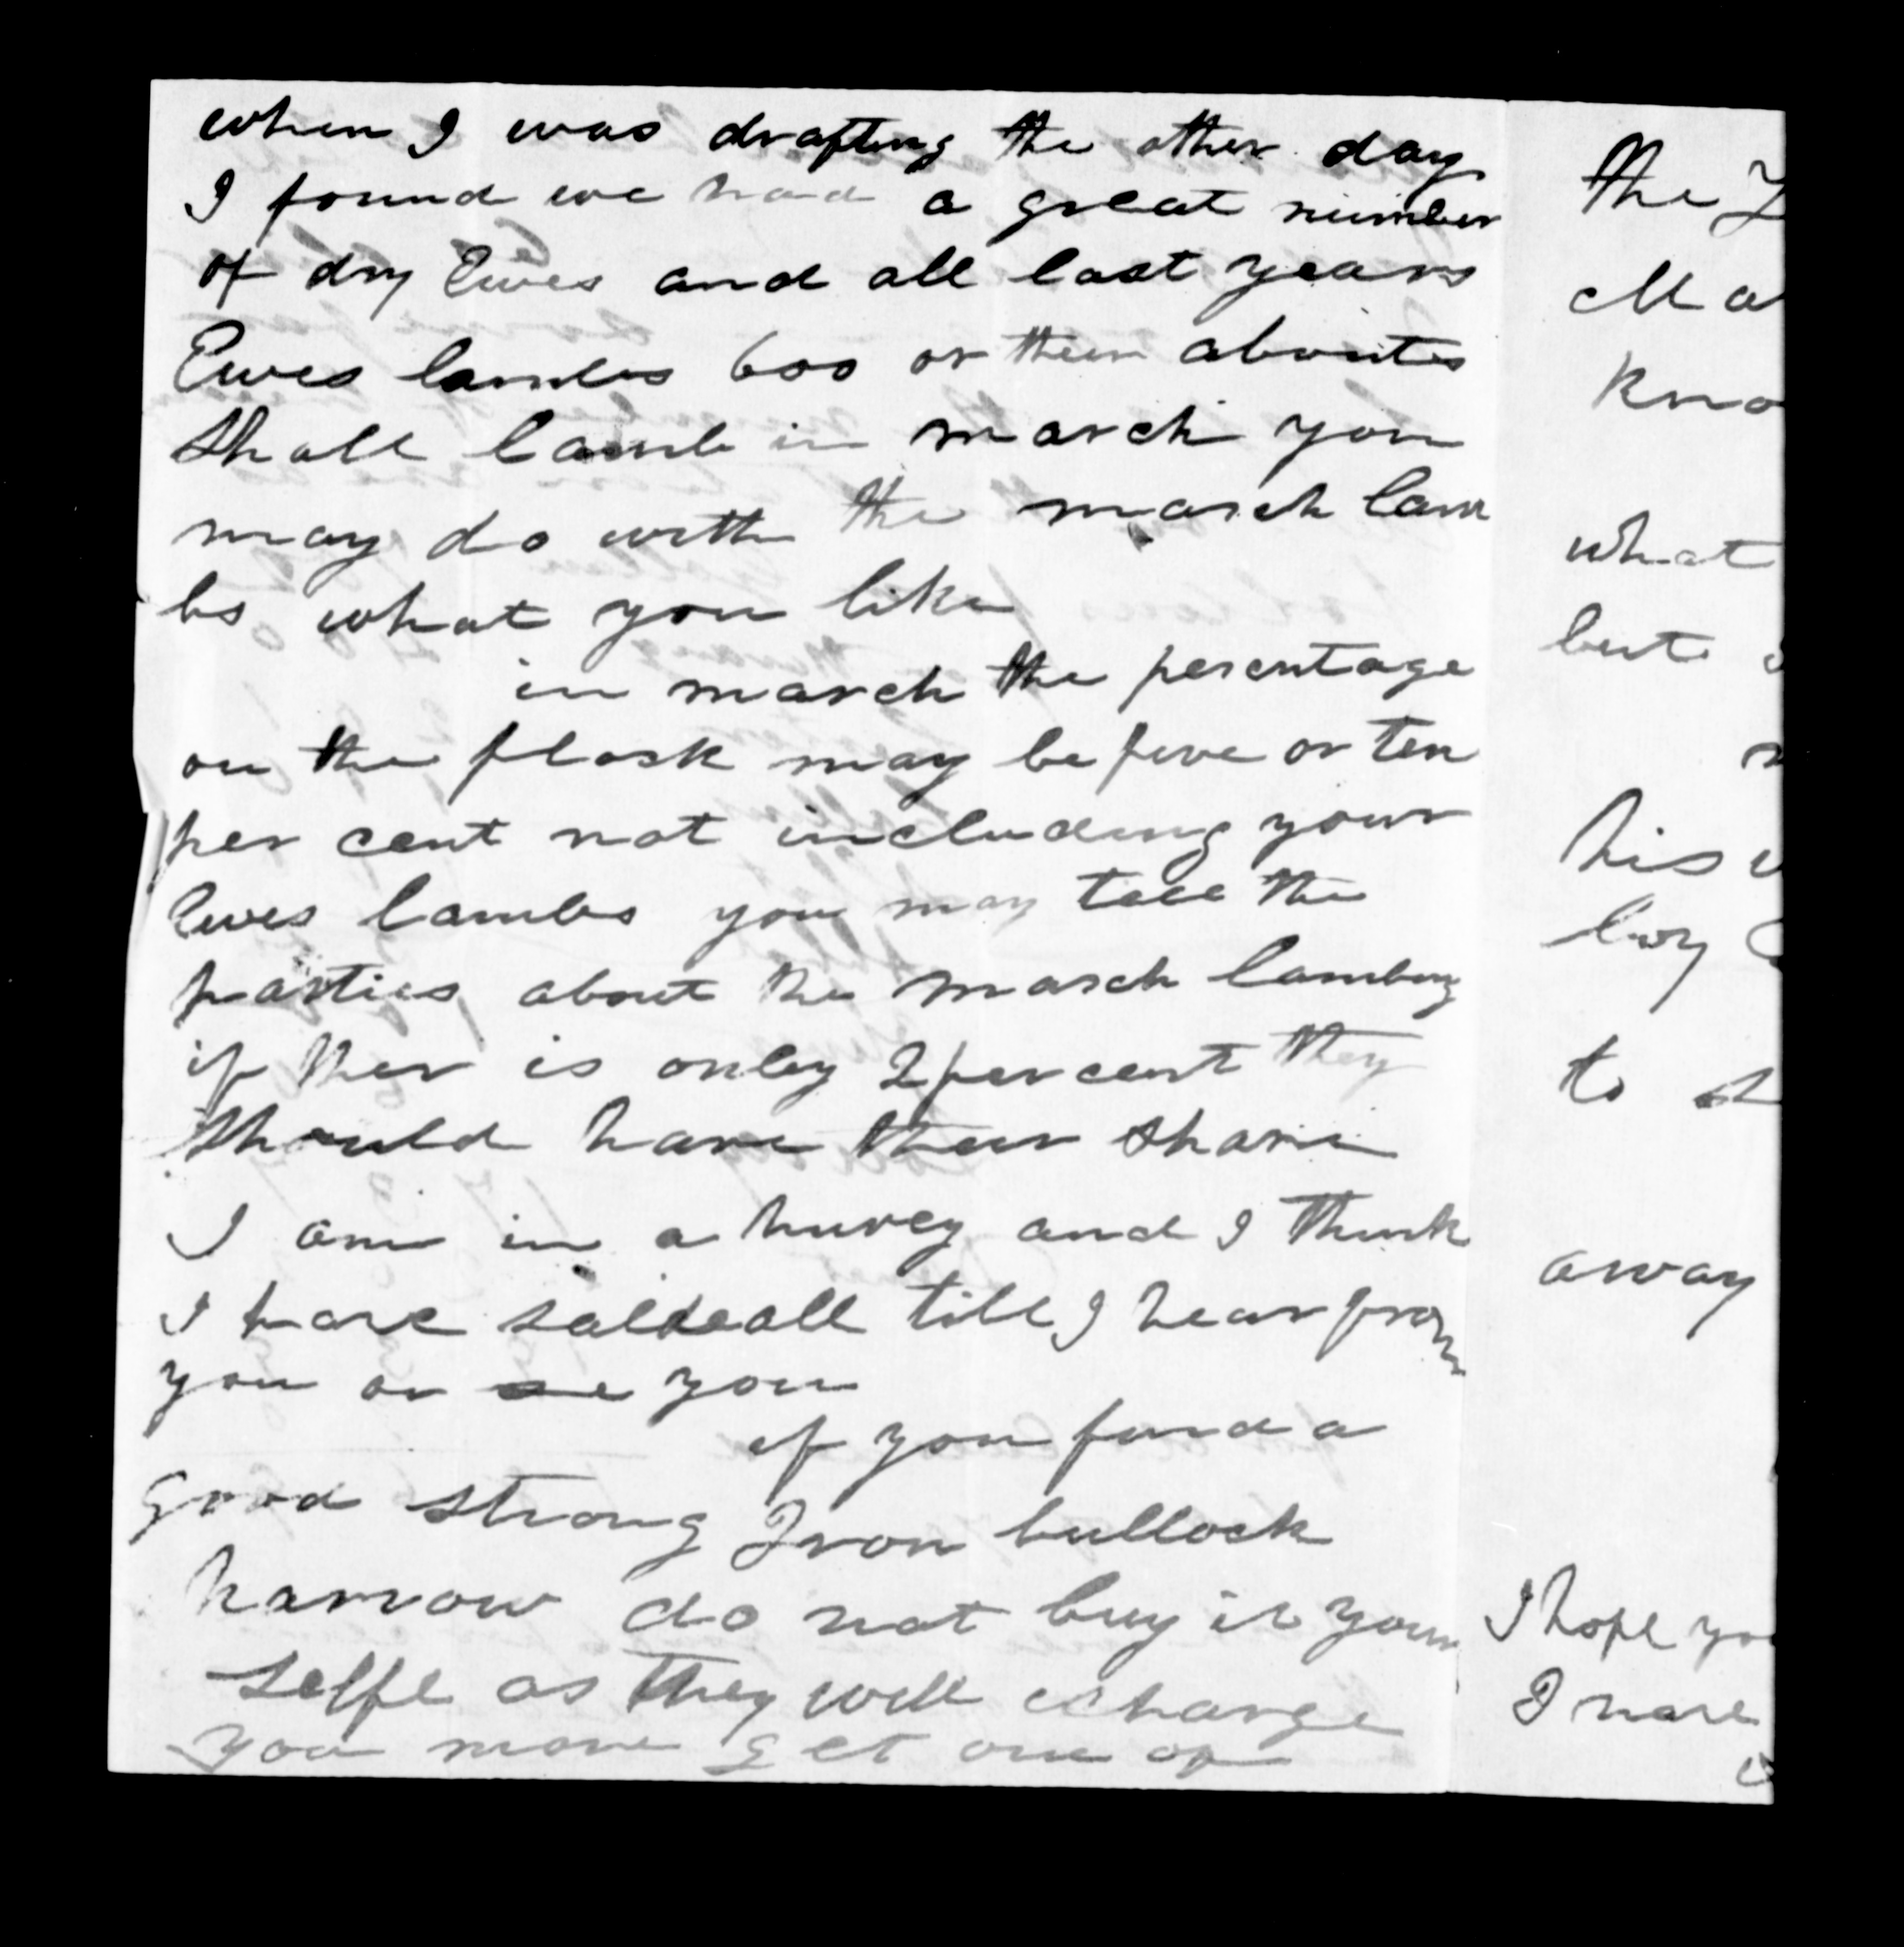 when I was drafting the other day
I found we had a great number
of dry Ewes and all last years
Ewes lambs 600 or their abouts
shall lamb in march you
may do with the march lam
bs what you like
in march the percentage
on the flosk may be five or ten
per cent not including your
Ewes lambs you may tell the
parties about the march lambing
if ther is only 2 per cent they
should have their share
I am in a hurey and I think
I have all till I hear from
you or see you
if you find a
good strong Iron bullock
harrow do not buy it your
selfe as they will charge
you more get one of
the
Ma
Kno
what
but
his
boy
to
away
I hope yo
I have